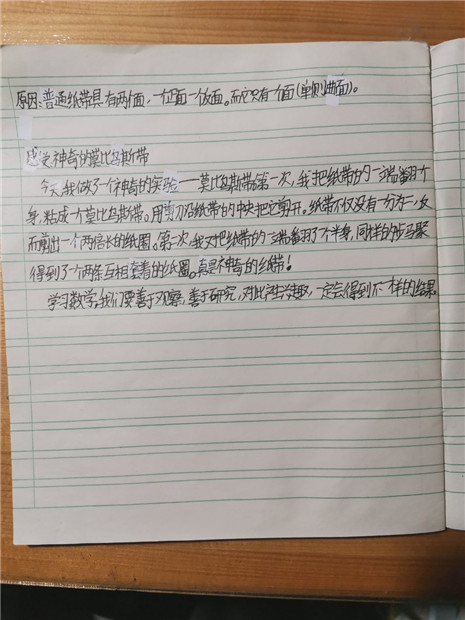 原因:普通纸带具有两个面,一个正面一个反面。而它只有一个面(单侧曲面)。
感受神奇的莫比乌斯带
今天我做了一个神奇的实验——莫比乌斯带。第一次,我把纸带的一端翻个
身,粘成一个莫比乌斯带。用剪刀沿纸带的中央把它剪开。纸带不仅没有一分为二,反
而剪出一个两倍长的纸圈。第二次,我又把纸带的一端翻了个半身,同样的步骤
得到了一个两条互相套着的纸圈。真是神奇的纸带!
学习数学,我们要善于观察,善于研究,对此产生兴趣,一定会得到不一样的结果。